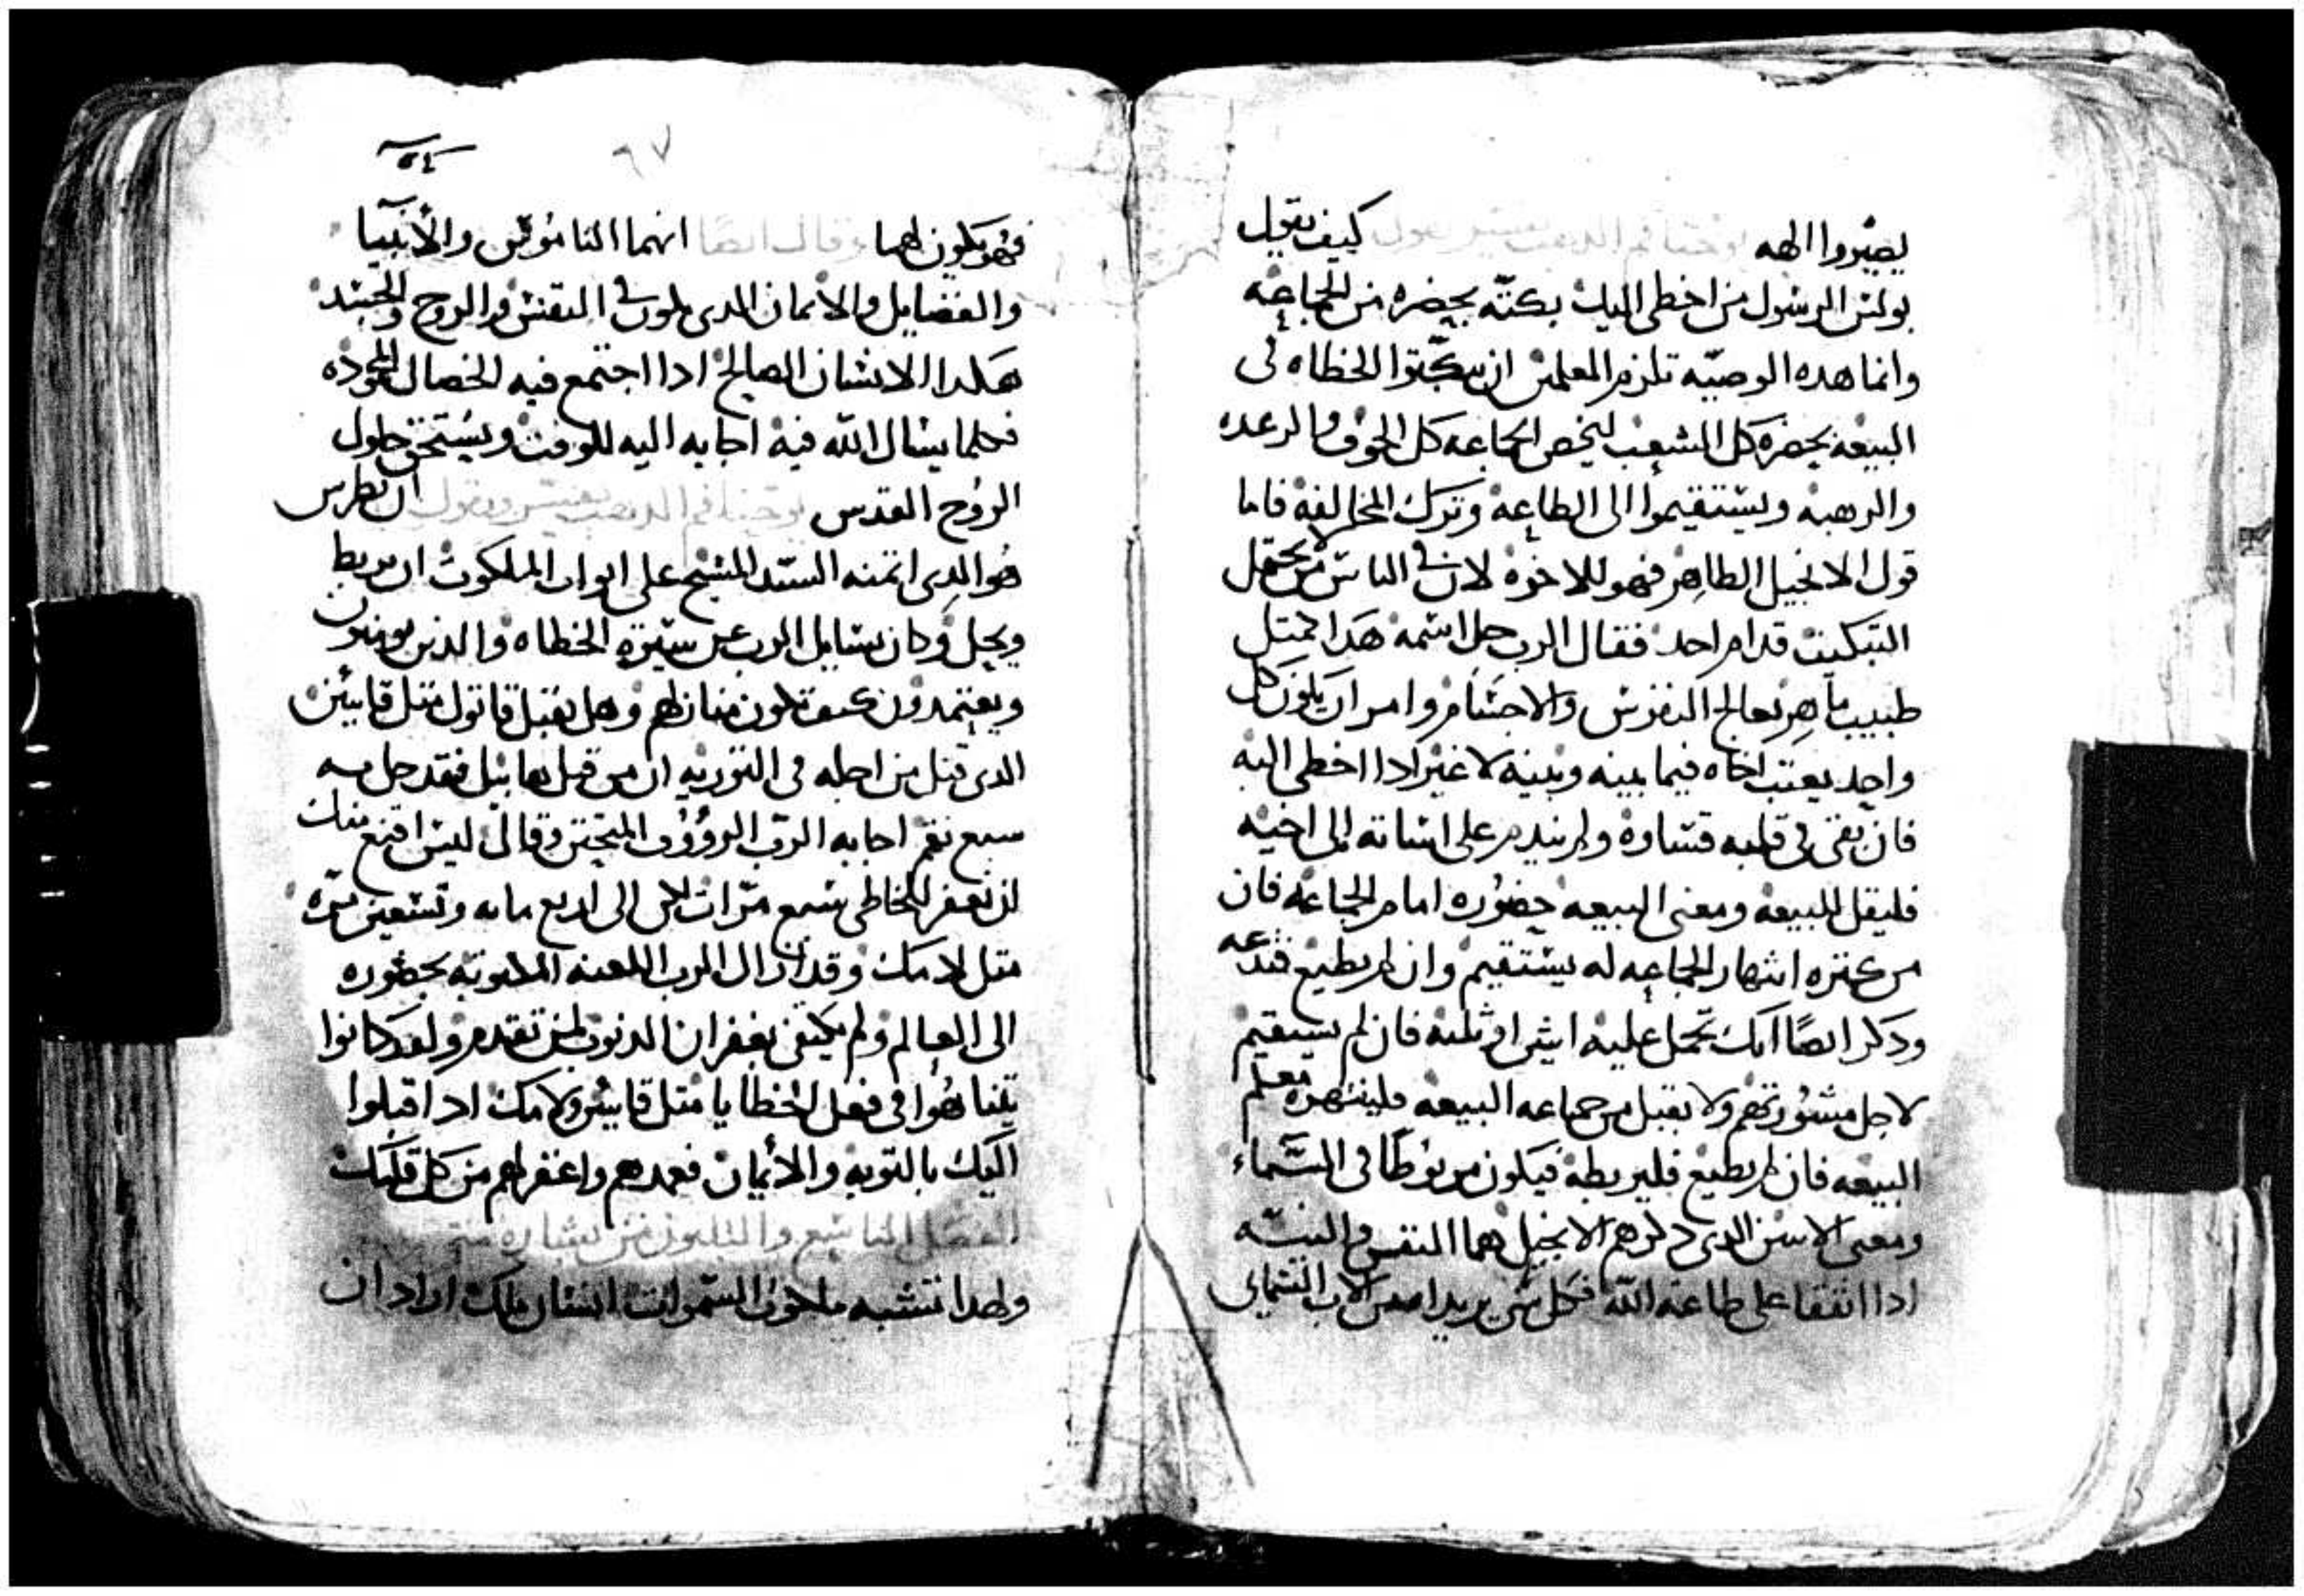 يصيروا الهه يوحنا فم الدهب يفسر يقول كيف يقول
بولس الرسول من اخطى اليك بكته بحضره من الجماعه
وانما هده الوصيه تلزم المعلمين ان يبكتوا الخطاه في
البيعه بحضرة كل الشعب ليخص الجماعه كل الخوف والرعده
والرهبه ويستقيموا الى الطاعه وترك المخالفه فاما
قول الانجيل الطاهر فهو للاخوه لان في الناس من لا يحتمل
التبكيت قدام احد فقال الرب جل اسمه هدا لمتل
طبيب ماهر يعالج النفوس والاجسام وامر ان يكون كل
واحد يعتب اخاه فيما بينه وبينه لا غير ادا اخطى اليه
فان بقى في قلبه قساوة ولم يندم على اساته الى اخيه
فليقل للبيعه ومعنى البيعه حضوره امام الجماعه فان
من عتره اشهار الجماعه له يستقيم وان لم يطيع فتدعه
ودكر ايضا انك تحمل عليه اتنين او تلته فان لم يستقيم
لاجل مشورتهم ولا يقبل من جماعه البيعه فلينتهره معلم
البيعه فان لم يطيع فليربطه فيكون مربوطا في السماء
ومعنى الاتنين الدي دكرهم الانجيل هما النفس والنيه
ادا اتفقا على طاعة الله فكل شي يريدا من الاب السمائي
٥٤
٦٧
فهو يكون لهما وقال ايضا انهما الناموس والأنبيا
والفضايل والايمان الدى يكون في النفس والروح والجسد
هكدا الانسان الصالح ادا اجتمع فيه الخصال المحموده
فكلما يسال الله فيه اجابه اليه للوقت ويستحق حلول
الروح القدس يوحنا فم الدهب يفسر ويقول ان بطرس
هو الدى اتمنه السيد المسيح على ابواب الملكوت ان يربط
ويحل وكان يسايل الرب عن سيرة الخطاه والدين يومنون
ويعتمدون كيف تكون منازلهم وهل يقبل قاتول متل قايين
الدى قيل من اجله في التوريه ان من قبل هابيل فقد حل به
سبع نقم اجابه الرب الرؤوف المتحنن وقال ليس اقنع منك
ان تغفر للخاطى سبع مرات لكن الى اربع مايه وتسعين مره
متل لامك وقد ازال الرب اللعنه المكتوبه بحضوره
الى العالم ولم يكتفى بغفران الدنوب لمن تقدم ولقد كانوا
يتناهوا في فعل الخطايا متل قايين ولامك ادا قبلوا
اليك بالتوبه والأيمان فعمدهم واغفر لهم من كل قلبك
الفصل التاسع والتلتون من بشارة متى
ولهدا تتشبه ملكوت السموات انسان ملك اراد ان